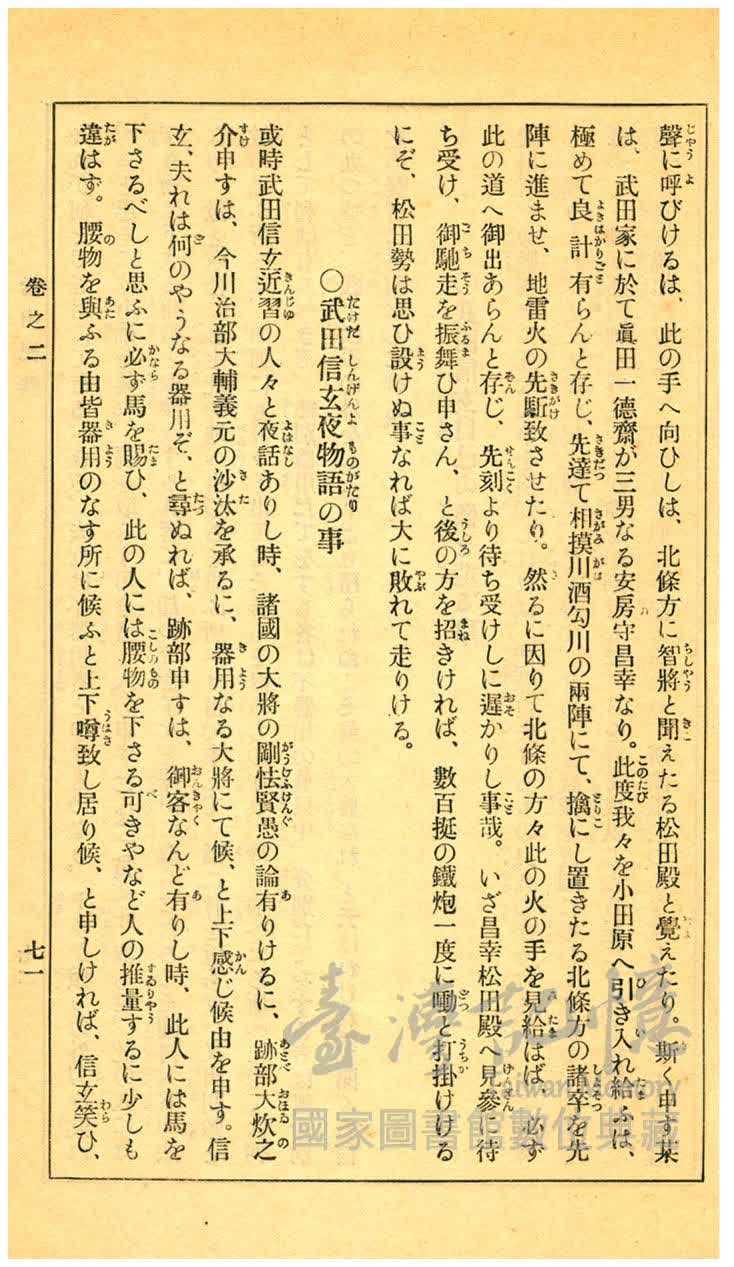 聲に呼びけるは、此の手へ向ひしは、北條方に智將と聞えたる松田殿と覺えたり。斯く申す某
は、武田家に於て眞田一德齋が三男なる安房守昌幸なり。此度我々を小田原へ引き入れ給ふは、
極めて良計有らんと存じ、先達て相摸川酒勾川の兩陣にて、擒にし置きたる北條方の諸卒を先
陣に進ませ、地雷火の先駈致させたり。然るに因りて北條の方々此の火の手を見給はば、必ず
此の道へ御出あらんと存じ、先刻より待ち受けしに遲かりし事哉。いざ昌幸松田殿へ見參に待
ち受け、御馳走を振舞ひ申さん、と後の方を招きければ、數百挺の鐵炮一度に噇と打掛けける
にぞ、松田勢は思ひ設けぬ事なれば大に敗れて走りける。
○武田信玄夜物語の事
或時武田信玄近習の人々と夜話ありし時、諸國の大將の剛怯賢愚の論有りけるに、跡部大炊之
介申すは、今川治部大輔義元の沙汰を承るに、器用なる大將にて候、と上下感じ候由を申す。信
玄、夫れは何のやうなる器用ぞ、と尋ぬれば、跡部申すは、御客なんど有りし時、此人には馬を
下さるべしと思ふに必ず馬を賜ひ、此の人には腰物を下さる可きやなど人の推量するに少しも
違はず。腰物を與ふる由皆器用のなす所に候ふと上下噂致し居り候、と申しければ、信玄笑ひ、
卷之二
七一
臺灣記憶
Taiwan Memory
國家圖書館數位典藏